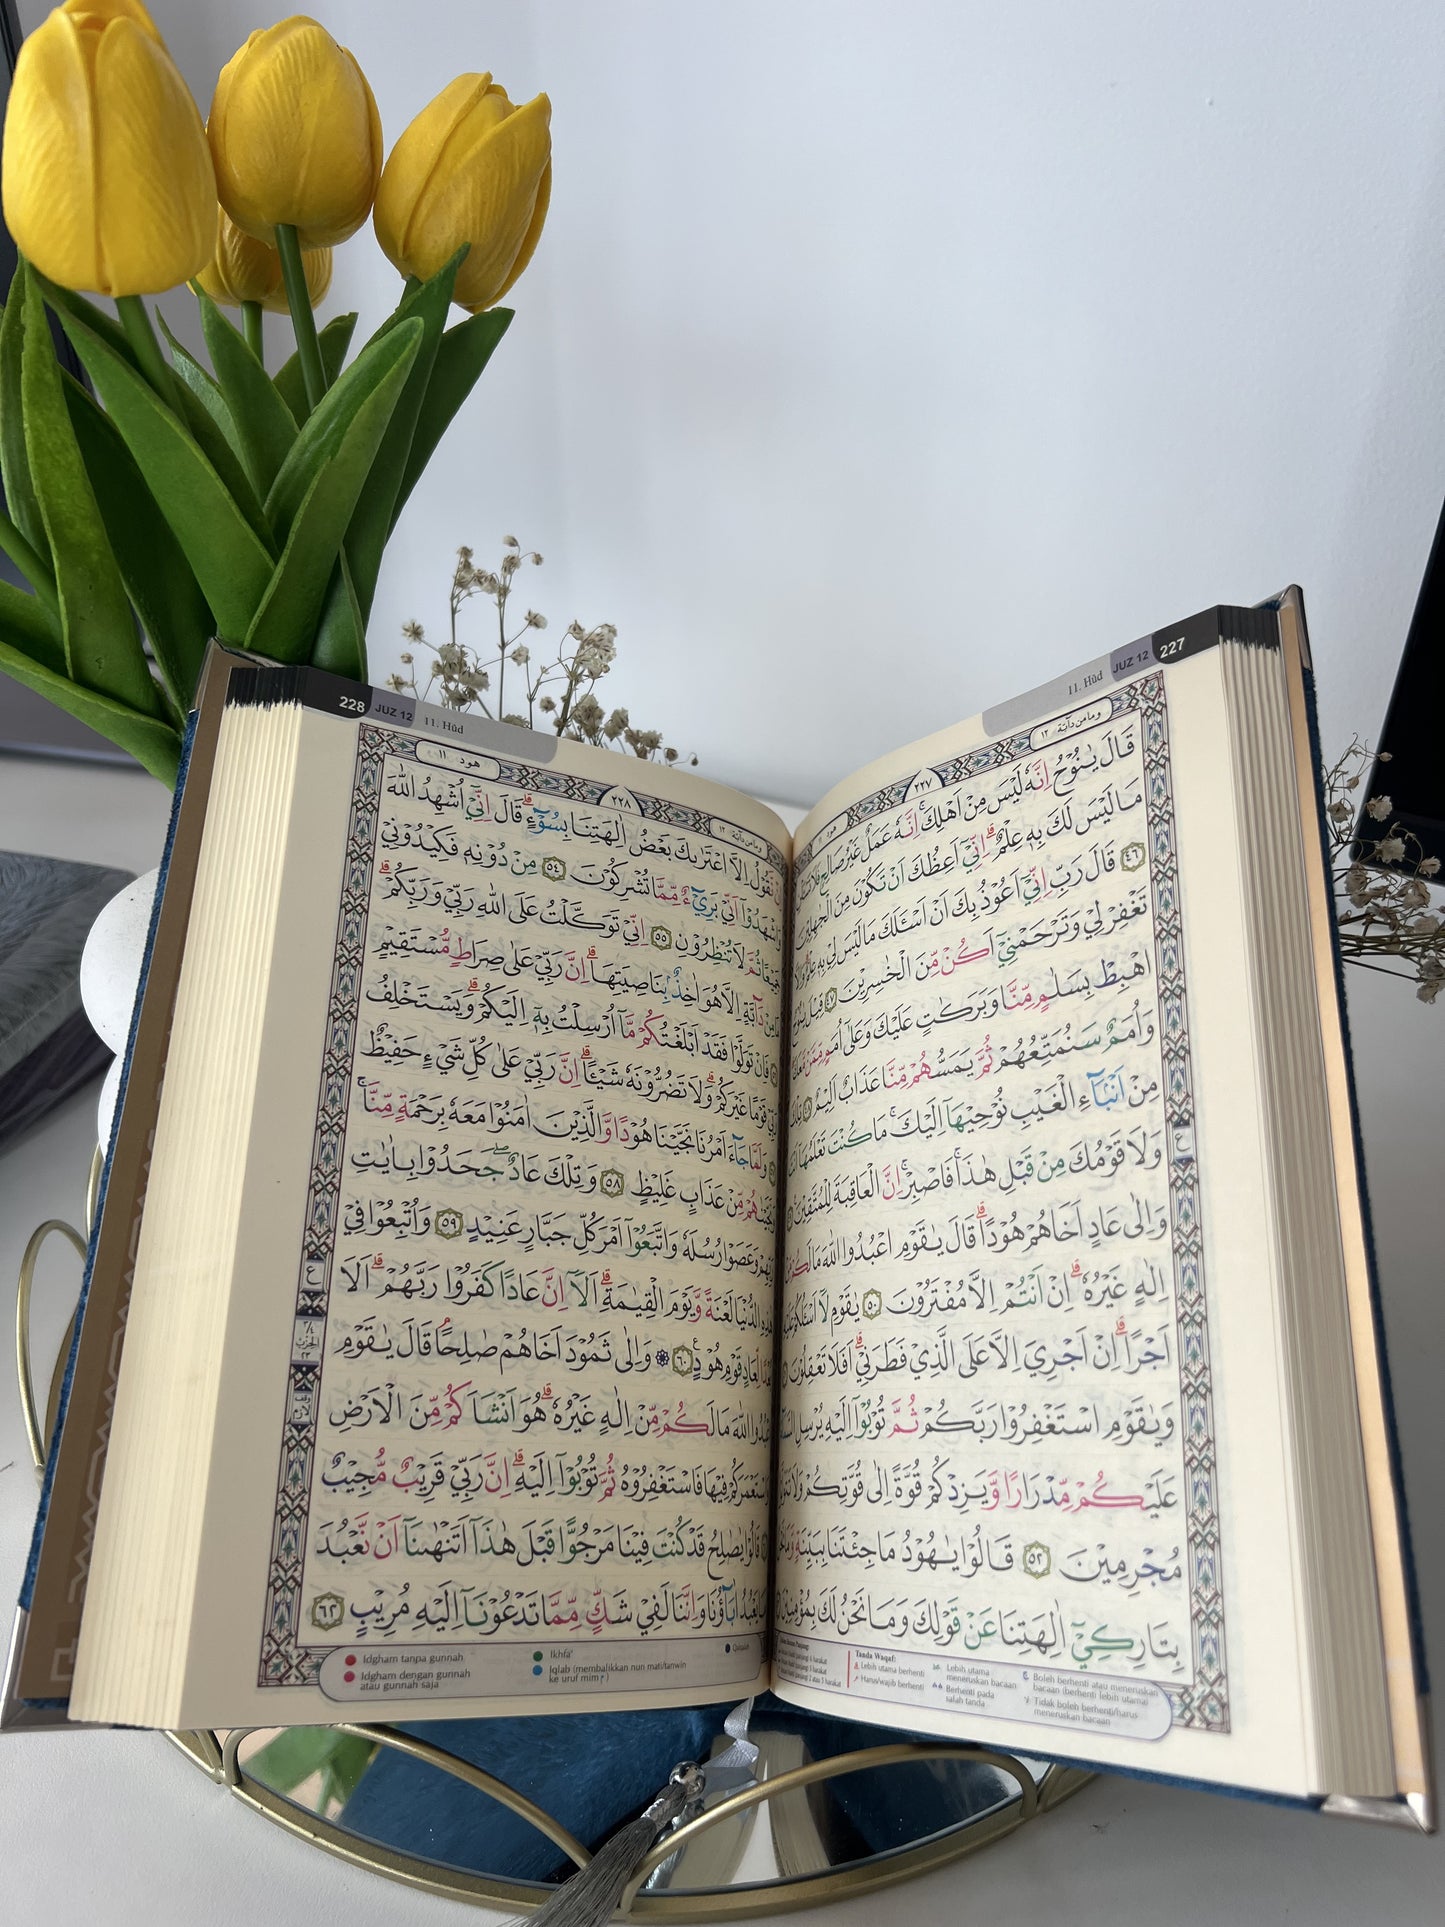 227 JUZ 12 11. Hûd
وما من دآبّة ١٢
٢٢٧
هود
قَالَ يٰنُوْحُ اِنَّهٗ لَيْسَ مِنْ اَهْلِكَ ۚاِنَّهٗ عَمَلٌ غَيْرُ صَالِحٍ فَلَا
مَا لَيْسَ لَكَ بِهٖ عِلْمٌ ۗاِنِّيْٓ اَعِظُكَ اَنْ تَكُوْنَ مِنَ الْجٰهِلِيْنَ
٤٦ قَالَ رَبِّ اِنِّيْٓ اَعُوْذُ بِكَ اَنْ اَسْـَٔلَكَ مَا لَيْسَ لِيْ بِهٖ عِلْمٌ
تَغْفِرْ لِيْ وَتَرْحَمْنِيْٓ اَكُنْ مِّنَ الْخٰسِرِيْنَ ٤٧ قِيْلَ يٰنُوْحُ
اهْبِطْ بِسَلٰمٍ مِّنَّا وَبَرَكٰتٍ عَلَيْكَ وَعَلٰٓى اُمَمٍ مِّمَّنْ مَّعَكَ
وَاُمَمٌ سَنُمَتِّعُهُمْ ثُمَّ يَمَسُّهُمْ مِّنَّا عَذَابٌ اَلِيْمٌ ٤٨ تِلْكَ
مِنْ اَنْۢبَاۤءِ الْغَيْبِ نُوْحِيْهَآ اِلَيْكَ ۚمَا كُنْتَ تَعْلَمُهَآ اَنْتَ
وَلَا قَوْمُكَ مِنْ قَبْلِ هٰذَاۚ فَاصْبِرْۚ اِنَّ الْعَاقِبَةَ لِلْمُتَّقِيْنَ
وَاِلٰى عَادٍ اَخَاهُمْ هُوْدًا ۗقَالَ يٰقَوْمِ اعْبُدُوا اللّٰهَ مَا لَكُمْ مِّنْ
اِلٰهٍ غَيْرُهٗ ۗاِنْ اَنْتُمْ اِلَّا مُفْتَرُوْنَ ٥٠ يٰقَوْمِ لَآ اَسْـَٔلُكُمْ عَلَيْهِ
اَجْرًا ۗاِنْ اَجْرِيَ اِلَّا عَلَى الَّذِيْ فَطَرَنِيْ ۗاَفَلَا تَعْقِلُوْنَ
وَيٰقَوْمِ اسْتَغْفِرُوْا رَبَّكُمْ ثُمَّ تُوْبُوْٓا اِلَيْهِ يُرْسِلِ السَّمَاۤءَ
عَلَيْكُمْ مِّدْرَارًا وَّيَزِدْكُمْ قُوَّةً اِلٰى قُوَّتِكُمْ وَلَا تَتَوَلَّوْا
مُجْرِمِيْنَ ٥٢ قَالُوْا يٰهُوْدُ مَا جِئْتَنَا بِبَيِّنَةٍ وَّمَا نَحْنُ
بِتَارِكِيْٓ اٰلِهَتِنَا عَنْ قَوْلِكَ وَمَا نَحْنُ لَكَ بِمُؤْمِنِيْنَ
Tanda Waqaf:
Lebih utama berhenti
Harus/wajib berhenti
Lebih utama meneruskan bacaan
Berhenti pada salah tanda
Boleh berhenti atau meneruskan bacaan (berhenti lebih utama)
Tidak boleh berhenti/harus meneruskan bacaan
228 JUZ 12 11. Hûd
وما من دآبّة ١٢
٢٢٨
هود ١١
نَّقُوْلُ اِلَّا اعْتَرٰىكَ بَعْضُ اٰلِهَتِنَا بِسُوْۤءٍ ۗقَالَ اِنِّيْٓ اُشْهِدُ اللّٰهَ
وَاشْهَدُوْٓا اَنِّيْ بَرِيْۤءٌ مِّمَّا تُشْرِكُوْنَ ٥٤ مِنْ دُوْنِهٖ فَكِيْدُوْنِيْ
جَمِيْعًا ثُمَّ لَا تُنْظِرُوْنِ ٥٥ اِنِّيْ تَوَكَّلْتُ عَلَى اللّٰهِ رَبِّيْ وَرَبِّكُمْ ۗ
مَا مِنْ دَاۤبَّةٍ اِلَّا هُوَ اٰخِذٌۢ بِنَاصِيَتِهَا ۗاِنَّ رَبِّيْ عَلٰى صِرَاطٍ مُّسْتَقِيْمٍ
فَاِنْ تَوَلَّوْا فَقَدْ اَبْلَغْتُكُمْ مَّآ اُرْسِلْتُ بِهٖٓ اِلَيْكُمْ ۗوَيَسْتَخْلِفُ
رَبِّيْ قَوْمًا غَيْرَكُمْ ۗوَلَا تَضُرُّوْنَهٗ شَيْـًٔا ۗاِنَّ رَبِّيْ عَلٰى كُلِّ شَيْءٍ حَفِيْظٌ
وَلَمَّا جَاۤءَ اَمْرُنَا نَجَّيْنَا هُوْدًا وَّالَّذِيْنَ اٰمَنُوْا مَعَهٗ بِرَحْمَةٍ مِّنَّاۚ
وَنَجَّيْنٰهُمْ مِّنْ عَذَابٍ غَلِيْظٍ ٥٨ وَتِلْكَ عَادٌ ۖجَحَدُوْا بِاٰيٰتِ
رَبِّهِمْ وَعَصَوْا رُسُلَهٗ وَاتَّبَعُوْٓا اَمْرَ كُلِّ جَبَّارٍ عَنِيْدٍ ٥٩ وَاُتْبِعُوْا فِيْ
هٰذِهِ الدُّنْيَا لَعْنَةً وَّيَوْمَ الْقِيٰمَةِ ۗاَلَآ اِنَّ عَادًا كَفَرُوْا رَبَّهُمْ ۗاَلَا
بُعْدًا لِّعَادٍ قَوْمِ هُوْدٍ ٦٠ ۞ وَاِلٰى ثَمُوْدَ اَخَاهُمْ صٰلِحًا ۘ قَالَ يٰقَوْمِ
اعْبُدُوا اللّٰهَ مَا لَكُمْ مِّنْ اِلٰهٍ غَيْرُهٗ ۗهُوَ اَنْشَاَكُمْ مِّنَ الْاَرْضِ
وَاسْتَعْمَرَكُمْ فِيْهَا فَاسْتَغْفِرُوْهُ ثُمَّ تُوْبُوْٓا اِلَيْهِ ۗاِنَّ رَبِّيْ قَرِيْبٌ مُّجِيْبٌ
قَالُوْا يٰصٰلِحُ قَدْ كُنْتَ فِيْنَا مَرْجُوًّا قَبْلَ هٰذَآ اَتَنْهٰىنَآ اَنْ نَّعْبُدَ
مَا يَعْبُدُ اٰبَاۤؤُنَا وَاِنَّنَا لَفِيْ شَكٍّ مِّمَّا تَدْعُوْنَآ اِلَيْهِ مُرِيْبٍ ٦٢
Idgham tanpa gunnah
Idgham dengan gunnah atau gunnah saja
Ikhfā'
Iqlab (membalikkan nun mati/tanwin ke uruf mim م)
Qalqalah